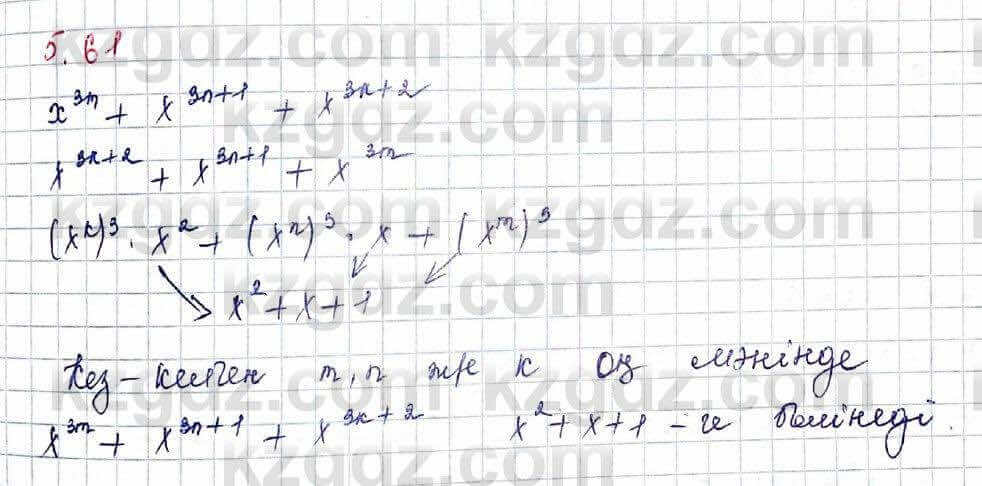 5.61
x^{3m} + x^{3n+1} + x^{3k+2}
x^{3k+2} + x^{3n+1} + x^{3m}
(x^k)^3 · x^2 + (x^n)^3 · x + (x^m)^3
x^2 + x + 1
Кез-келген m, n және k оң мәнінде
x^{3m} + x^{3n+1} + x^{3k+2} x^2 + x + 1 - ге бөлінеді.
kzgdz.com kzgdz.com
kzgdz.com
kzgdz.com kzgdz.com
kzgdz.com
kzgdz.com kzgdz.com
kzgdz.com